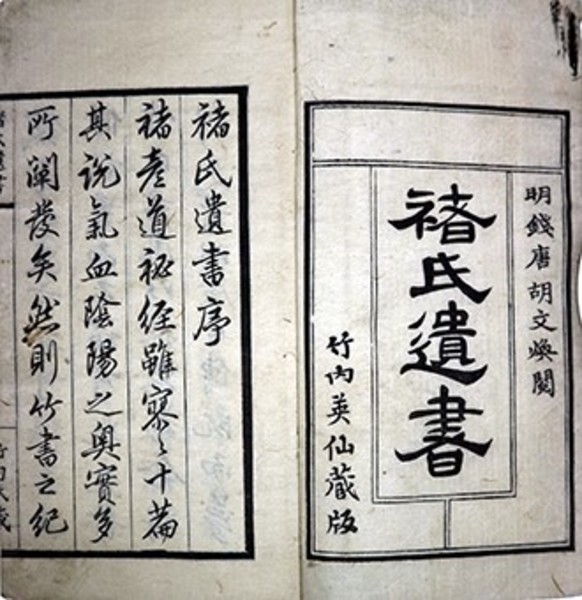 明錢唐胡文煥閱
褚氏遺書
竹內英仙蔵版
褚氏遺書序
褚彥道祕經雖寥〻十篇
其說氣血陰陽之奧實多
所闡發矣然則竹書之紀